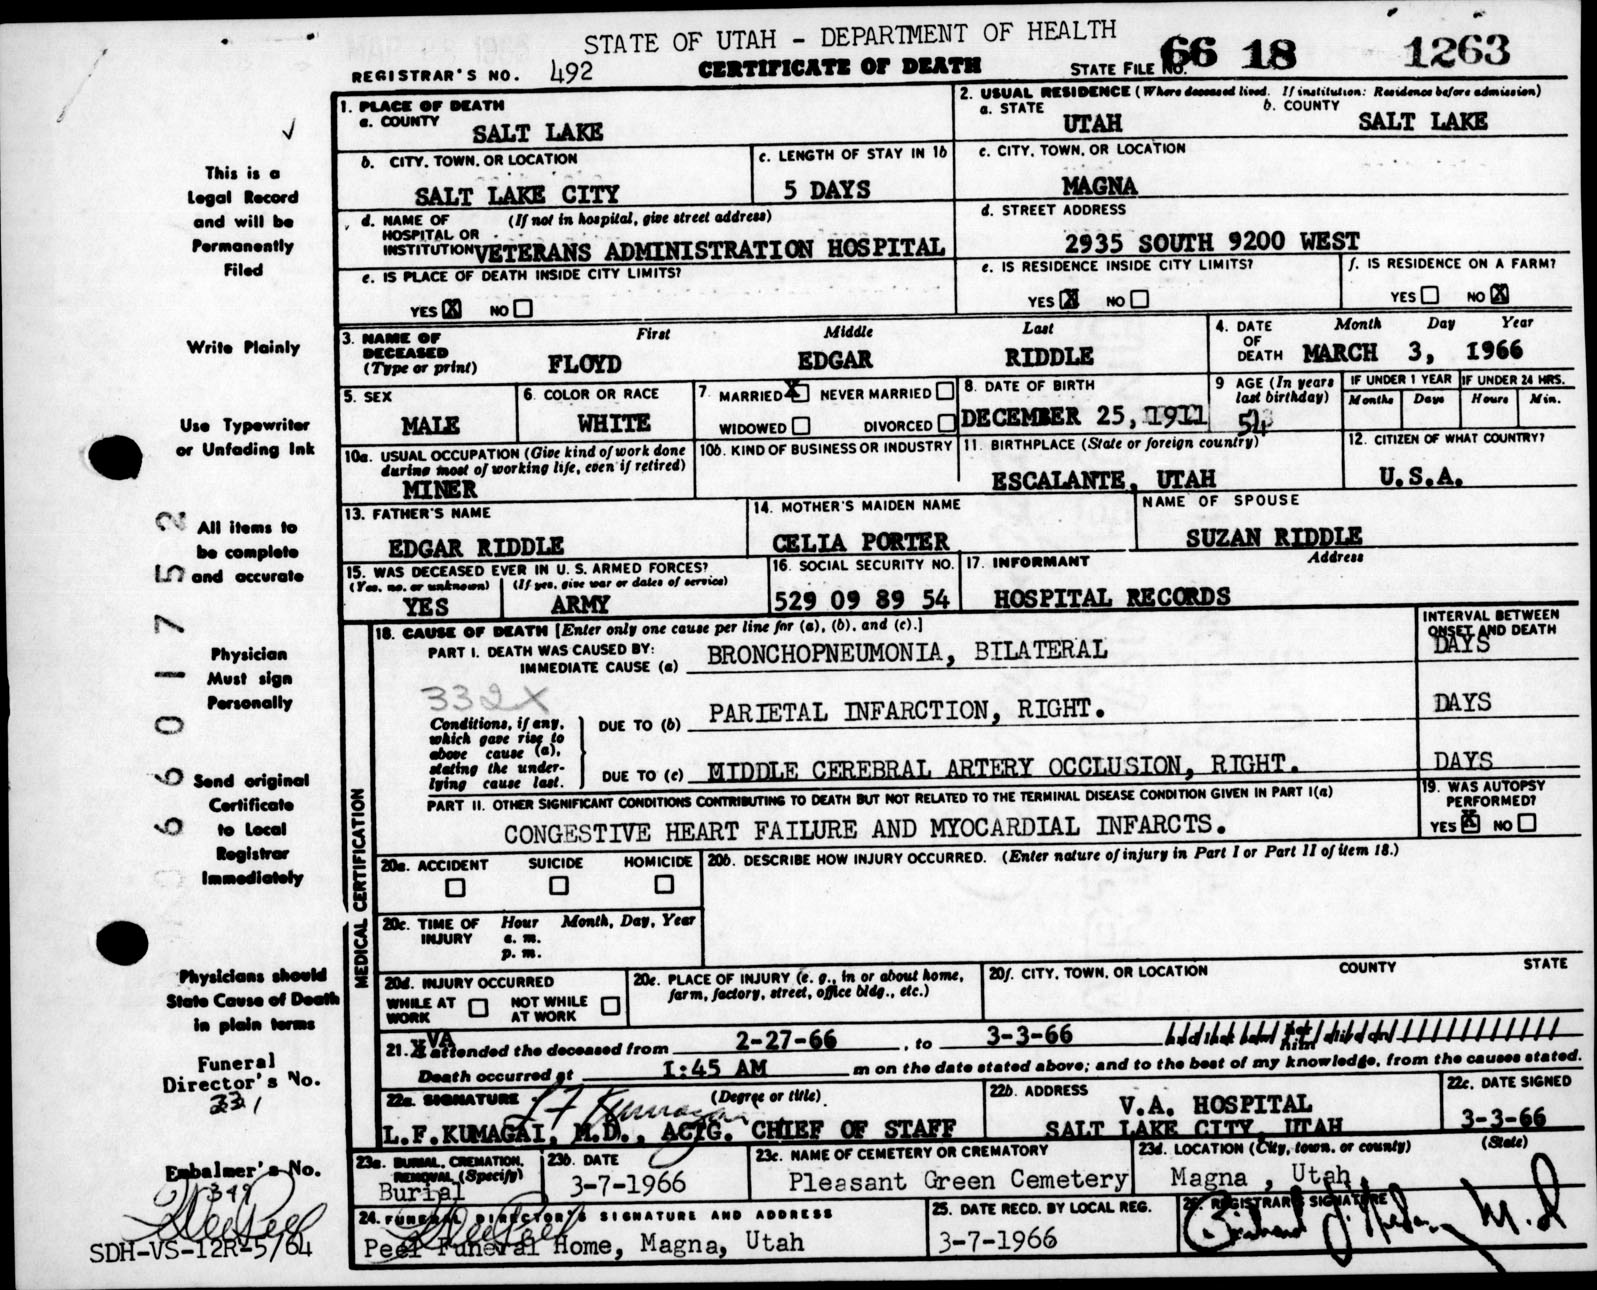 STATE OF UTAH - DEPARTMENT OF HEALTH
REGISTRAR'S NO. 492 CERTIFICATE OF DEATH STATE FILE NO. 66 18 1263
This is a
Legal Record
and will be
Permanently
Filed
Write Plainly
Use Typewriter
or Unfading Ink
All items to
be complete
and accurate
Physician
Must sign
Personally
Send original
Certificate
to Local
Registrar
Immediately
Physicians should
State Cause of Death
in plain terms
Funeral
Director's No.
331
Embalmer's No.
349
SDH-VS-12R-5/64
6601752
1. PLACE OF DEATH
a. COUNTY SALT LAKE
2. USUAL RESIDENCE (Where deceased lived. If institution: Residence before admission)
a. STATE UTAH b. COUNTY SALT LAKE
b. CITY, TOWN, OR LOCATION SALT LAKE CITY
c. LENGTH OF STAY IN 1b 5 DAYS
c. CITY, TOWN, OR LOCATION MAGNA
d. NAME OF HOSPITAL OR INSTITUTION (If not in hospital, give street address)
VETERANS ADMINISTRATION HOSPITAL
d. STREET ADDRESS
2935 SOUTH 9200 WEST
e. IS PLACE OF DEATH INSIDE CITY LIMITS?
YES X NO
e. IS RESIDENCE INSIDE CITY LIMITS?
YES X NO
f. IS RESIDENCE ON A FARM?
YES NO X
3. NAME OF DECEASED (Type or print) First Middle Last
FLOYD EDGAR RIDDLE
4. DATE OF DEATH Month Day Year
MARCH 3, 1966
5. SEX MALE
6. COLOR OR RACE WHITE
7. MARRIED X NEVER MARRIED
WIDOWED DIVORCED
8. DATE OF BIRTH DECEMBER 25, 1911
9 AGE (In years last birthday) 54
IF UNDER 1 YEAR Months Days
IF UNDER 24 HRS. Hours Min.
10a. USUAL OCCUPATION (Give kind of work done during most of working life, even if retired)
MINER
10b. KIND OF BUSINESS OR INDUSTRY
11. BIRTHPLACE (State or foreign country)
ESCALANTE, UTAH
12. CITIZEN OF WHAT COUNTRY?
U.S.A.
13. FATHER'S NAME
EDGAR RIDDLE
14. MOTHER'S MAIDEN NAME
CELIA PORTER
NAME OF SPOUSE
SUZAN RIDDLE
15. WAS DECEASED EVER IN U. S. ARMED FORCES?
(Yes, no, or unknown) (If yes, give war or dates of service)
YES ARMY
16. SOCIAL SECURITY NO.
529 09 89 54
17. INFORMANT Address
HOSPITAL RECORDS
MEDICAL CERTIFICATION
18. CAUSE OF DEATH [Enter only one cause per line for (a), (b), and (c).]
INTERVAL BETWEEN ONSET AND DEATH
PART I. DEATH WAS CAUSED BY:
IMMEDIATE CAUSE (a) BRONCHOPNEUMONIA, BILATERAL DAYS
332X
Conditions, if any, which gave rise to above cause (a), stating the underlying cause last.
DUE TO (b) PARIETAL INFARCTION, RIGHT. DAYS
DUE TO (c) MIDDLE CEREBRAL ARTERY OCCLUSION, RIGHT. DAYS
PART II. OTHER SIGNIFICANT CONDITIONS CONTRIBUTING TO DEATH BUT NOT RELATED TO THE TERMINAL DISEASE CONDITION GIVEN IN PART I(a)
CONGESTIVE HEART FAILURE AND MYOCARDIAL INFARCTS.
19. WAS AUTOPSY PERFORMED?
YES X NO
20a. ACCIDENT SUICIDE HOMICIDE
20b. DESCRIBE HOW INJURY OCCURRED. (Enter nature of injury in Part I or Part II of item 18.)
20c. TIME OF INJURY Hour Month, Day, Year
a. m.
p. m.
20d. INJURY OCCURRED
WHILE AT WORK NOT WHILE AT WORK
20e. PLACE OF INJURY (e. g., in or about home, farm, factory, street, office bldg., etc.)
20f. CITY, TOWN, OR LOCATION COUNTY STATE
21. VA attended the deceased from 2-27-66, to 3-3-66
Death occurred at 1:45 AM m on the date stated above; and to the best of my knowledge, from the causes stated.
22a. SIGNATURE (Degree or title)
L F Kumagai
L.F.KUMAGAI, M.D., ACTG. CHIEF OF STAFF
22b. ADDRESS
V.A. HOSPITAL
SALT LAKE CITY, UTAH
22c. DATE SIGNED
3-3-66
23a. BURIAL, CREMATION, REMOVAL (Specify)
Burial
23b. DATE
3-7-1966
23c. NAME OF CEMETERY OR CREMATORY
Pleasant Green Cemetery
23d. LOCATION (City, town, or county) (State)
Magna , Utah
24. FUNERAL DIRECTOR'S SIGNATURE AND ADDRESS
Peel Funeral Home, Magna, Utah
25. DATE RECD. BY LOCAL REG.
3-7-1966
26. REGISTRAR'S SIGNATURE